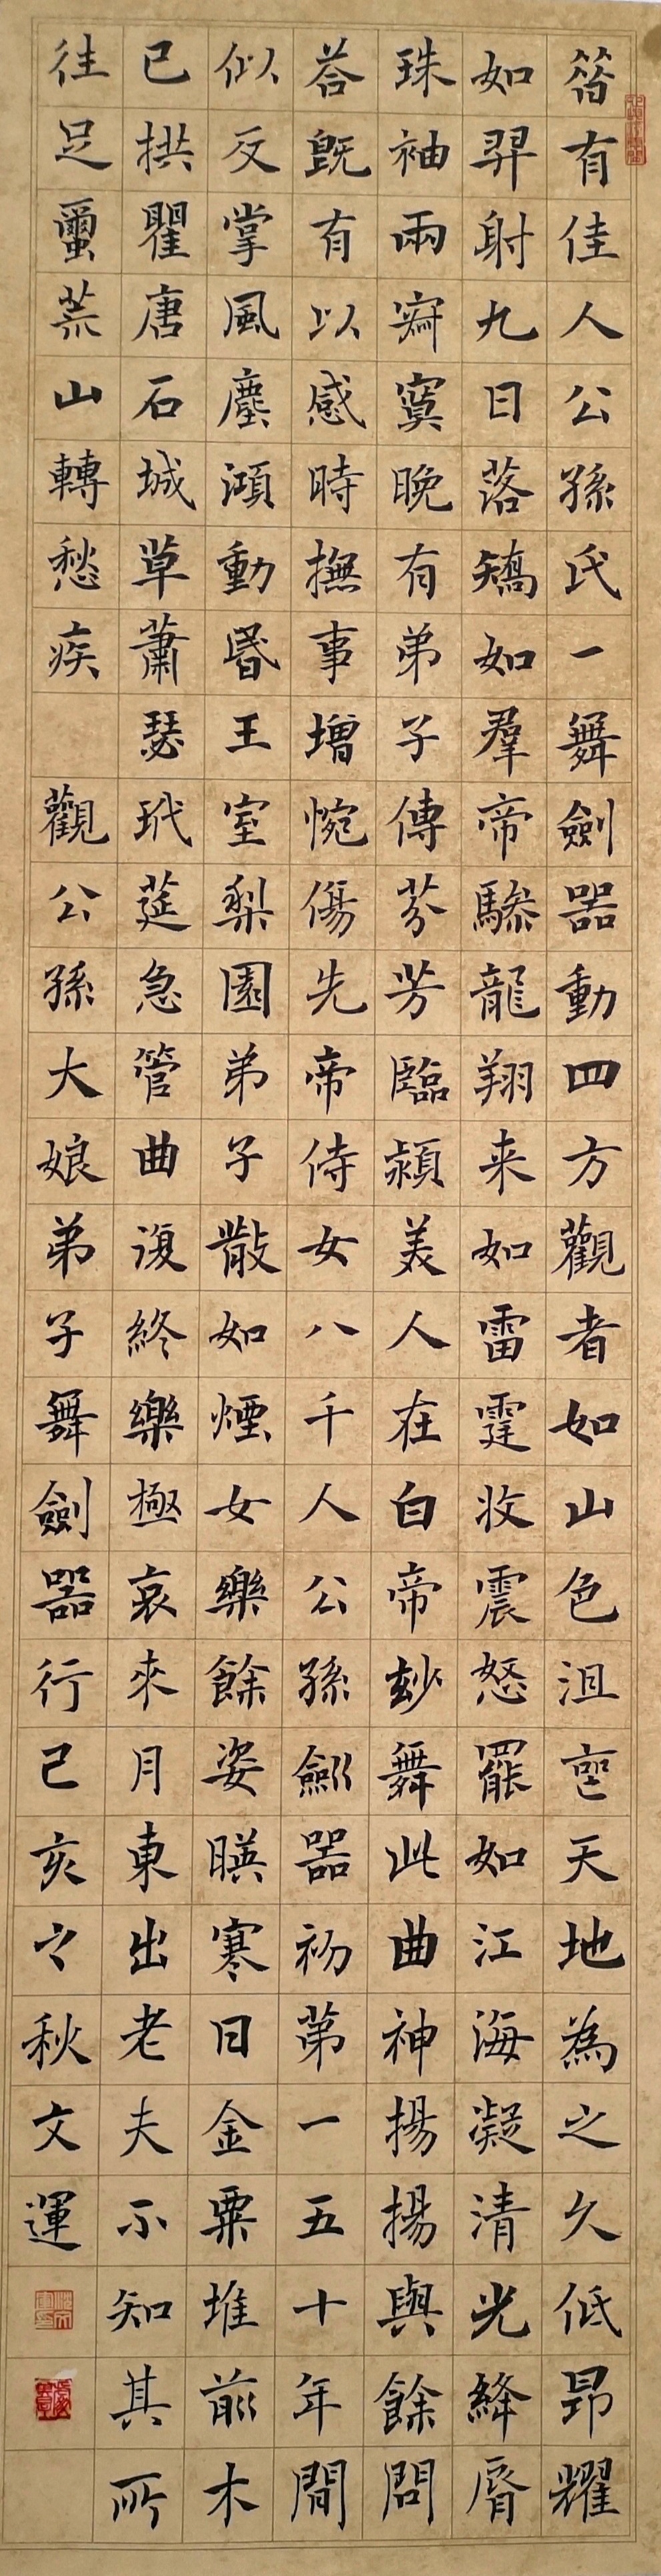 昔有佳人公孫氏一舞劍器動四方觀者如山色沮喪天地為之久低昂耀
如羿射九日落矯如羣帝驂龍翔来如雷霆收震怒罷如江海凝清光絳脣
珠袖兩寂寞晚有弟子傳芬芳臨潁美人在白帝妙舞此曲神揚揚與餘問
荅既有以感時撫事增惋傷先帝侍女八千人公孫劍器初第一五十年間
似反掌風塵澒動昬王室梨園弟子散如煙女樂餘姿暎寒日金粟堆前木
已拱瞿唐石城草蕭瑟玳莚急管曲復終樂極哀來月東出老夫不知其所
往足繭荒山轉愁疾 觀公孫大娘弟子舞劍器行己亥之秋文運